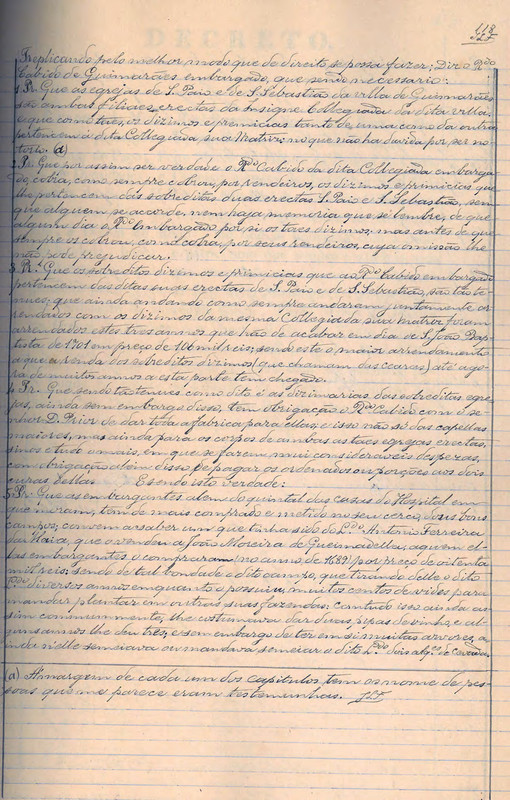 118
DECRETO.
Treplicando pelo melhor modo que de direito se possa fazer; Diz o Rdo
Cabido de Guimarães embargado, que sendo necessario:
1 Pr. Que as egrejas de S. Paio e de S. Sebastião da villa de Guimarães
são ambas filiaes, erectas da Insigne Collegiada da dita villa,
e que como taes, os dizimos e premicias tanto de uma como da outra
pertencem á dita Collegiada, sua Matriz; no que não ha duvida por ser no-
torio. (a)
2 Pr. Que por assim ser verdade o Rdo Cabido da dita Collegiada embarga-
do, cobra, como sempre cobrou, por rendeiros, os dizimos e premicias que
lhe pertencem das sobreditas duas erectas S. Paio e S. Sebastião, sem
que alguem se acorde, nem haja memoria que se lembre, de que
algum dia o Rdo Embargado por si os taes dizimos; mas antes de que
sempre os cobrou, como cobra, por seus rendeiros, cuja omissão lhe
não pode prejudicar.
3 Pr. Que os sobreditos dizimos e premicias que ao Rdo Cabido embargado
pertencem das ditas suas erectas de S. Paio e de S. Sebastião, são tão te-
nues, que ainda andando como sempre andaram juntamente ar-
rendados com os dizimos da mesma Collegiada sua Matriz foram
arrendados estes tres annos que hão de acabar em dia de S. João Bap-
tista de 1701 em preço de 106 mil reis; sendo este o maior arrendamento
a que a renda dos sobreditos dizimos (que chamam das cearas) até ago-
ra de muitos annos a esta parte tem chegado.
4 Pr. Que sendo tão tenues como dito é as dizimarias das sobreditas egre-
jas, ainda sem embargo disso, tem obrigação o Rdo Cabido com o se-
nhor D. Prior de dar toda a fabrica para ellas; e isso não só das capellas
maiores, mas ainda para os corpos de ambas as taes egrejas erectas,
sinos e tudo o mais, em que se fazem mui consideraveis despezas,
com obrigação alem disso de pagar os ordenados ou porções aos dois
curas, dellas. E sendo isto verdade:
5 Pr. Que as embargantes alem do quintal das casas do Hospital em
que moram, tem de mais comprado e metido no seu cerco, dois bons
campos; convem a saber um que tinha sido do Ldo Antonio Ferreira
da Maia, que o vendeu a João Moreira de Guimarães, a quem el-
las embargantes o compraram no anno de 1689 por preço de oitenta
mil reis; sendo de tal bondade o dito campo, que tirando delle o dito
Ldo diversos annos emquanto o possuiu, muitos centos de vides para
mandar plantar em outras suas fazendas: Comtudo isso ainda as-
sim commummente, lhe costumava dar duas pipas de vinho, e al-
guns annos lhe deu tres; e sem embargo de ter em si muitas arvores, a-
inda nelle semeava ou mandava semear o dito Ldo dois alqes de cevada.
(a) A margem de cada um dos capitulos tem os nomes de pes-
soas que me parece eram testemunhas.